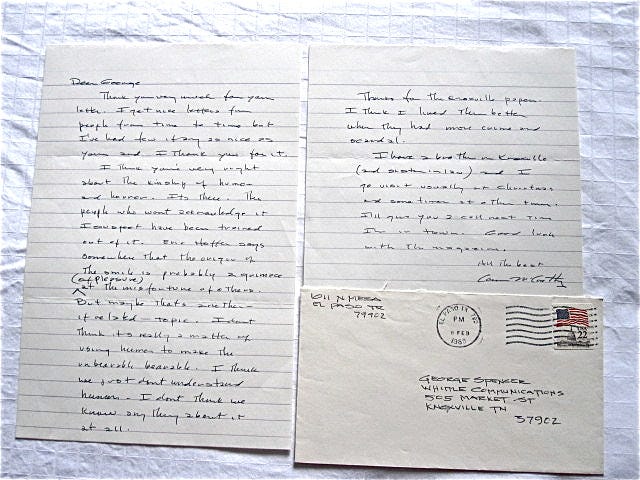 Dear George
Thank you very much for your
letter. I get nice letters from
people from time to time but
I've had few if any as nice as
yours and I thank you for it.
I think you're very right
about the kinship of humor
and horror. Its there. The
people who wont acknowledge it
I suspect have been trained
out of it. Eric Hoffer says
somewhere that the origin of
the smile is probably a grimace
(of pleasure)
at the misfortune of others.
But maybe thats another—
if related—topic. I dont
think its really a matter of
using humor to make the
unbearable bearable. I think
we just dont understand
humor. I dont think we
know anything about it
at all.
Thanks for the Knoxville papers.
I think I liked them better
when they had more crime and
scandal.
I have a brother in Knoxville
(and sister in law) and I
go visit usually at Christmas
and sometimes at other times.
I'll give you a call next time
I'm in town. Good luck
with the magazine.
All the best
Cormac McCarthy
611 N MESA
EL PASO TX
79902
EL PASO TX 799
PM
FEB
USA
22
GEORGE SPENCER
WHITTLE COMMUNICATIONS
505 MARKET ST
KNOXVILLE TN
37902